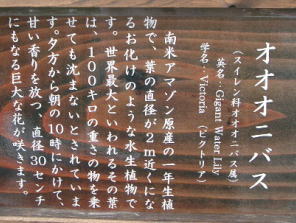 オオオニバス
（スイレン科オオオニバス属）
英名：Gigant Water Lily
学名：Victoria （ビクトリア）
南米アマゾン原産の一年生植
物で、葉の直径が２ｍ近くにな
るお化けのような水生植物で
す。世界最大といわれるその葉
は、１００キロの重さの物を乗
せても沈まないとされていま
す。夕方から朝の10時にかけて、
甘い香りを放つ、直径30センチ
にもなる巨大な花が咲きます。